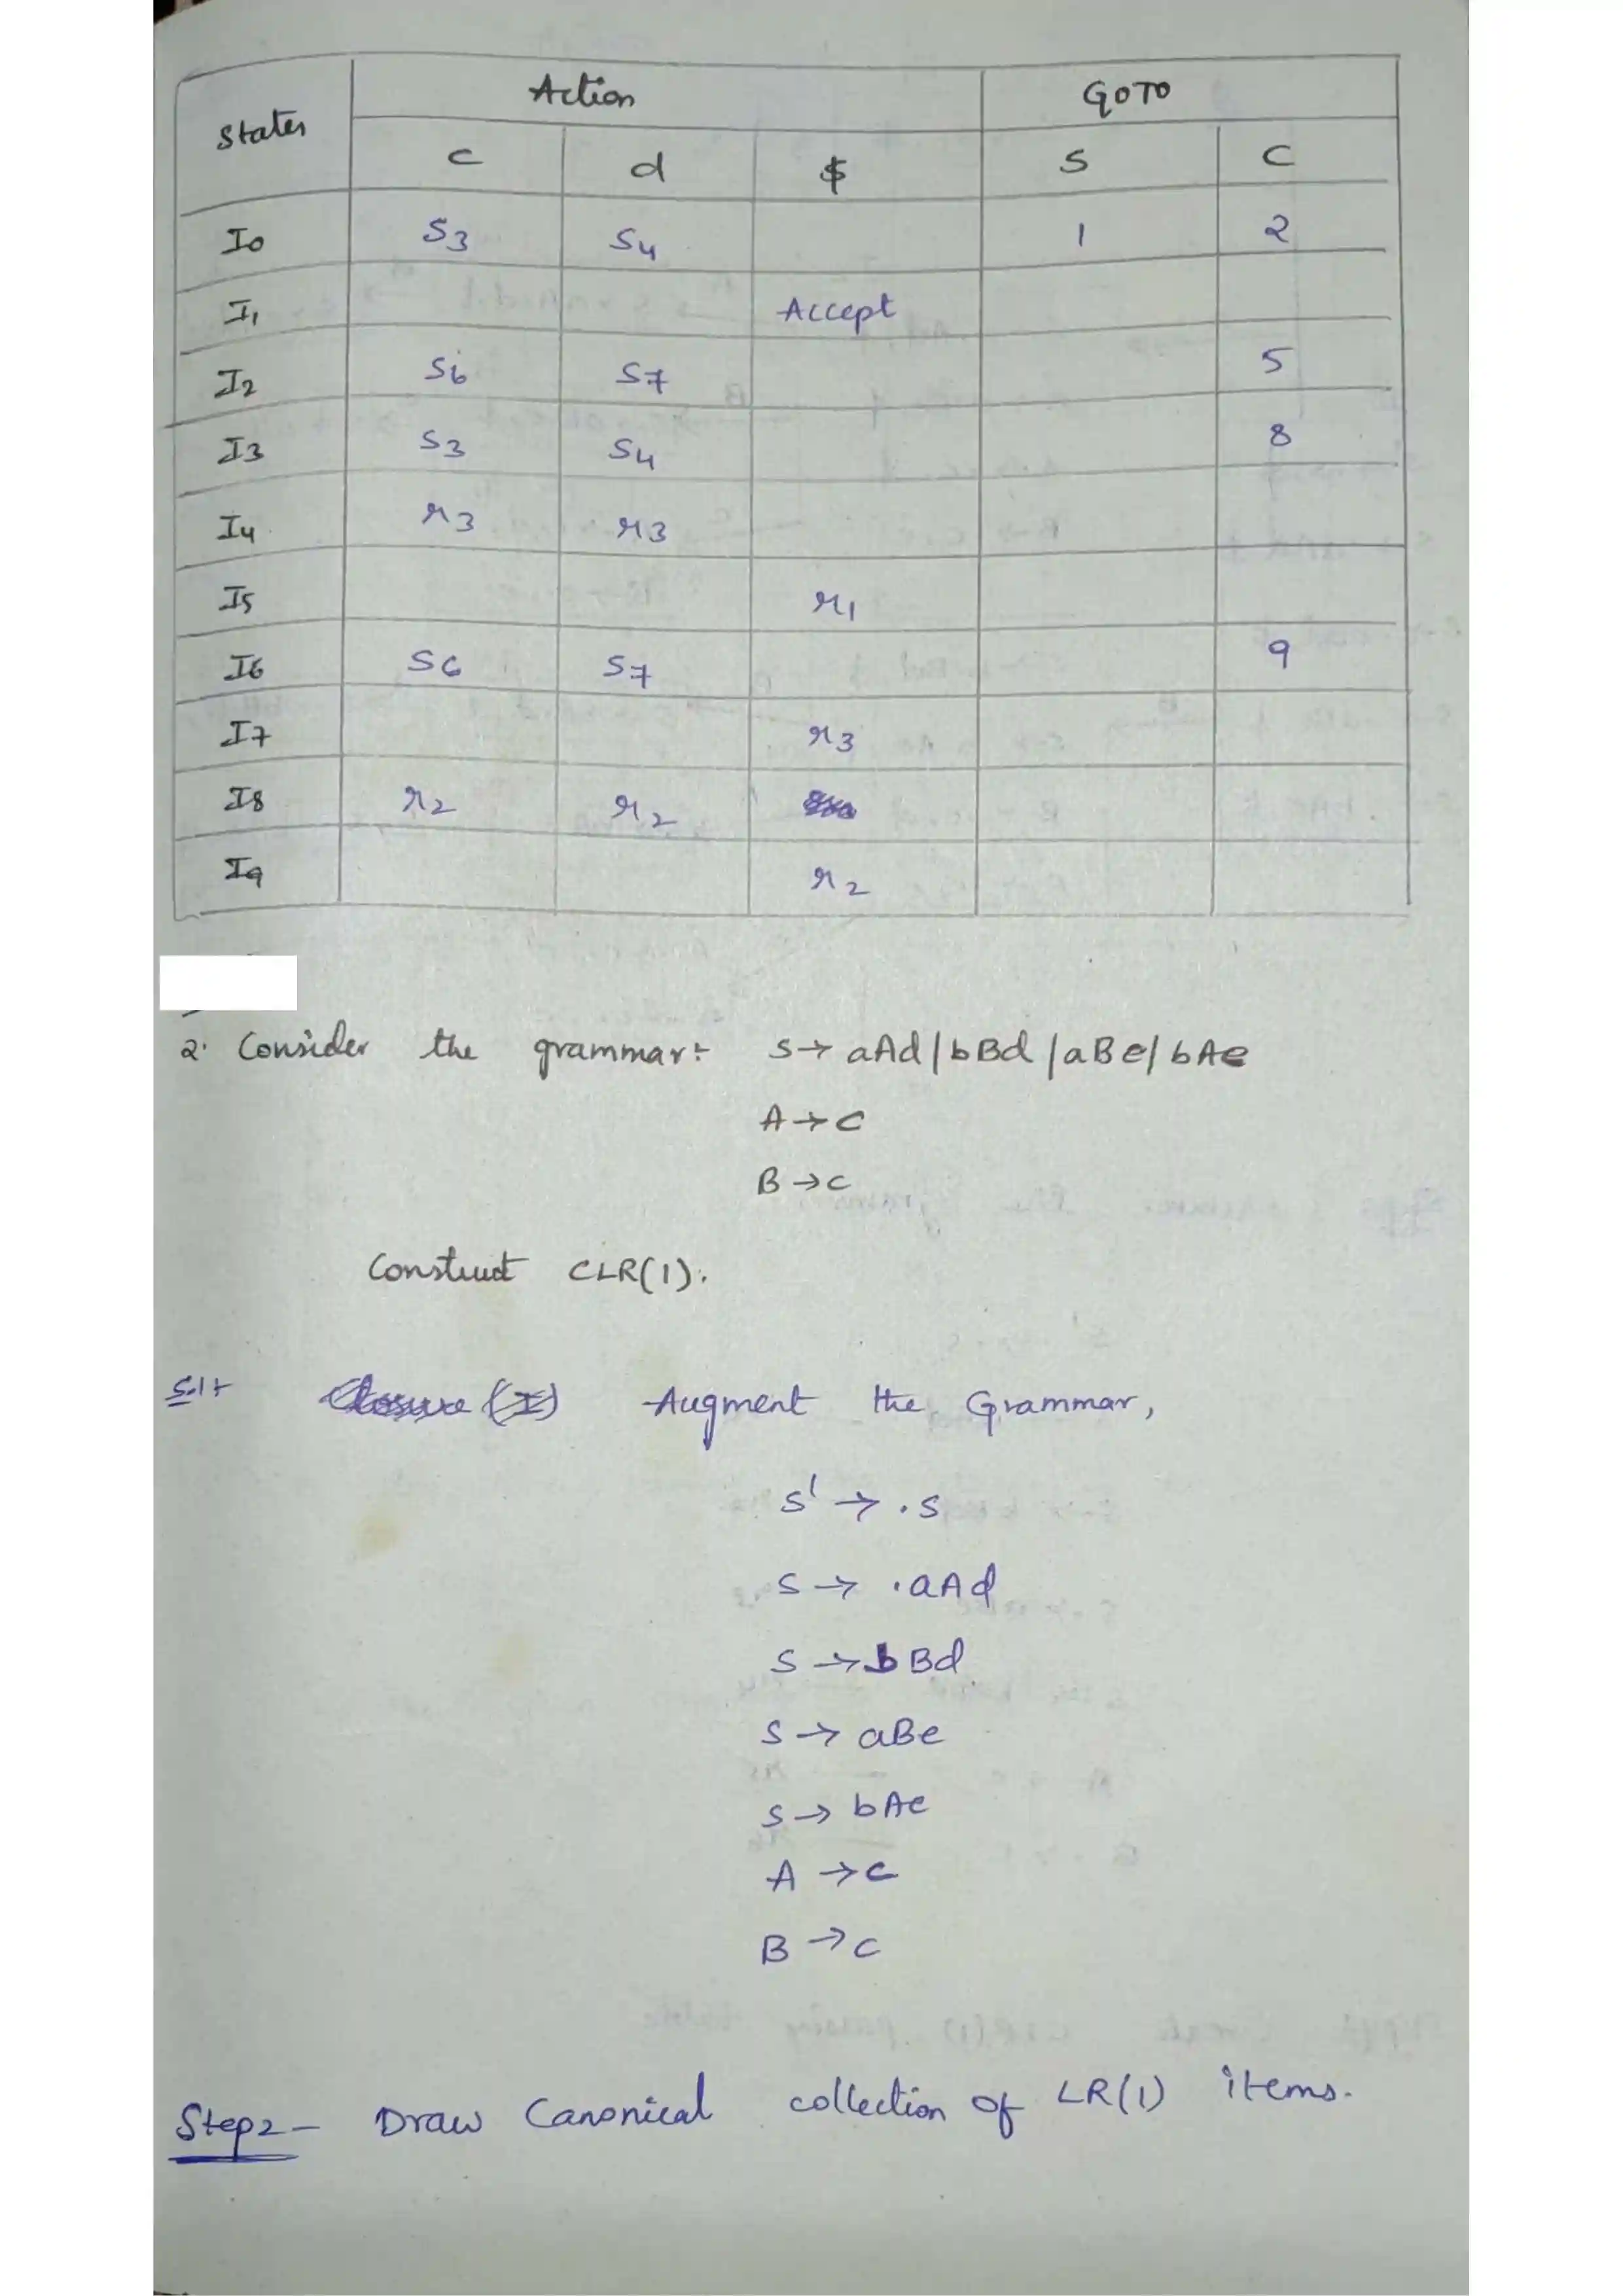 States Action GOTO
c d $ S C
I0 S3 S4 1 2
I1 Accept
I2 S6 S7 5
I3 S3 S4 8
I4 r3 r3
I5 r1
I6 S6 S7 9
I7 r3
I8 r2 r2
I9 r2
2. Consider the grammar:- S→ aAd | bBd | aBe | bAe
A→c
B→c
Construct CLR(1).
Sol:- Closure (I) Augment the Grammar,
S' → .S
S → .aAd
S → bBd
S → aBe
S → bAe
A → c
B → c
Step2 – Draw Canonical collection of LR(1) items.